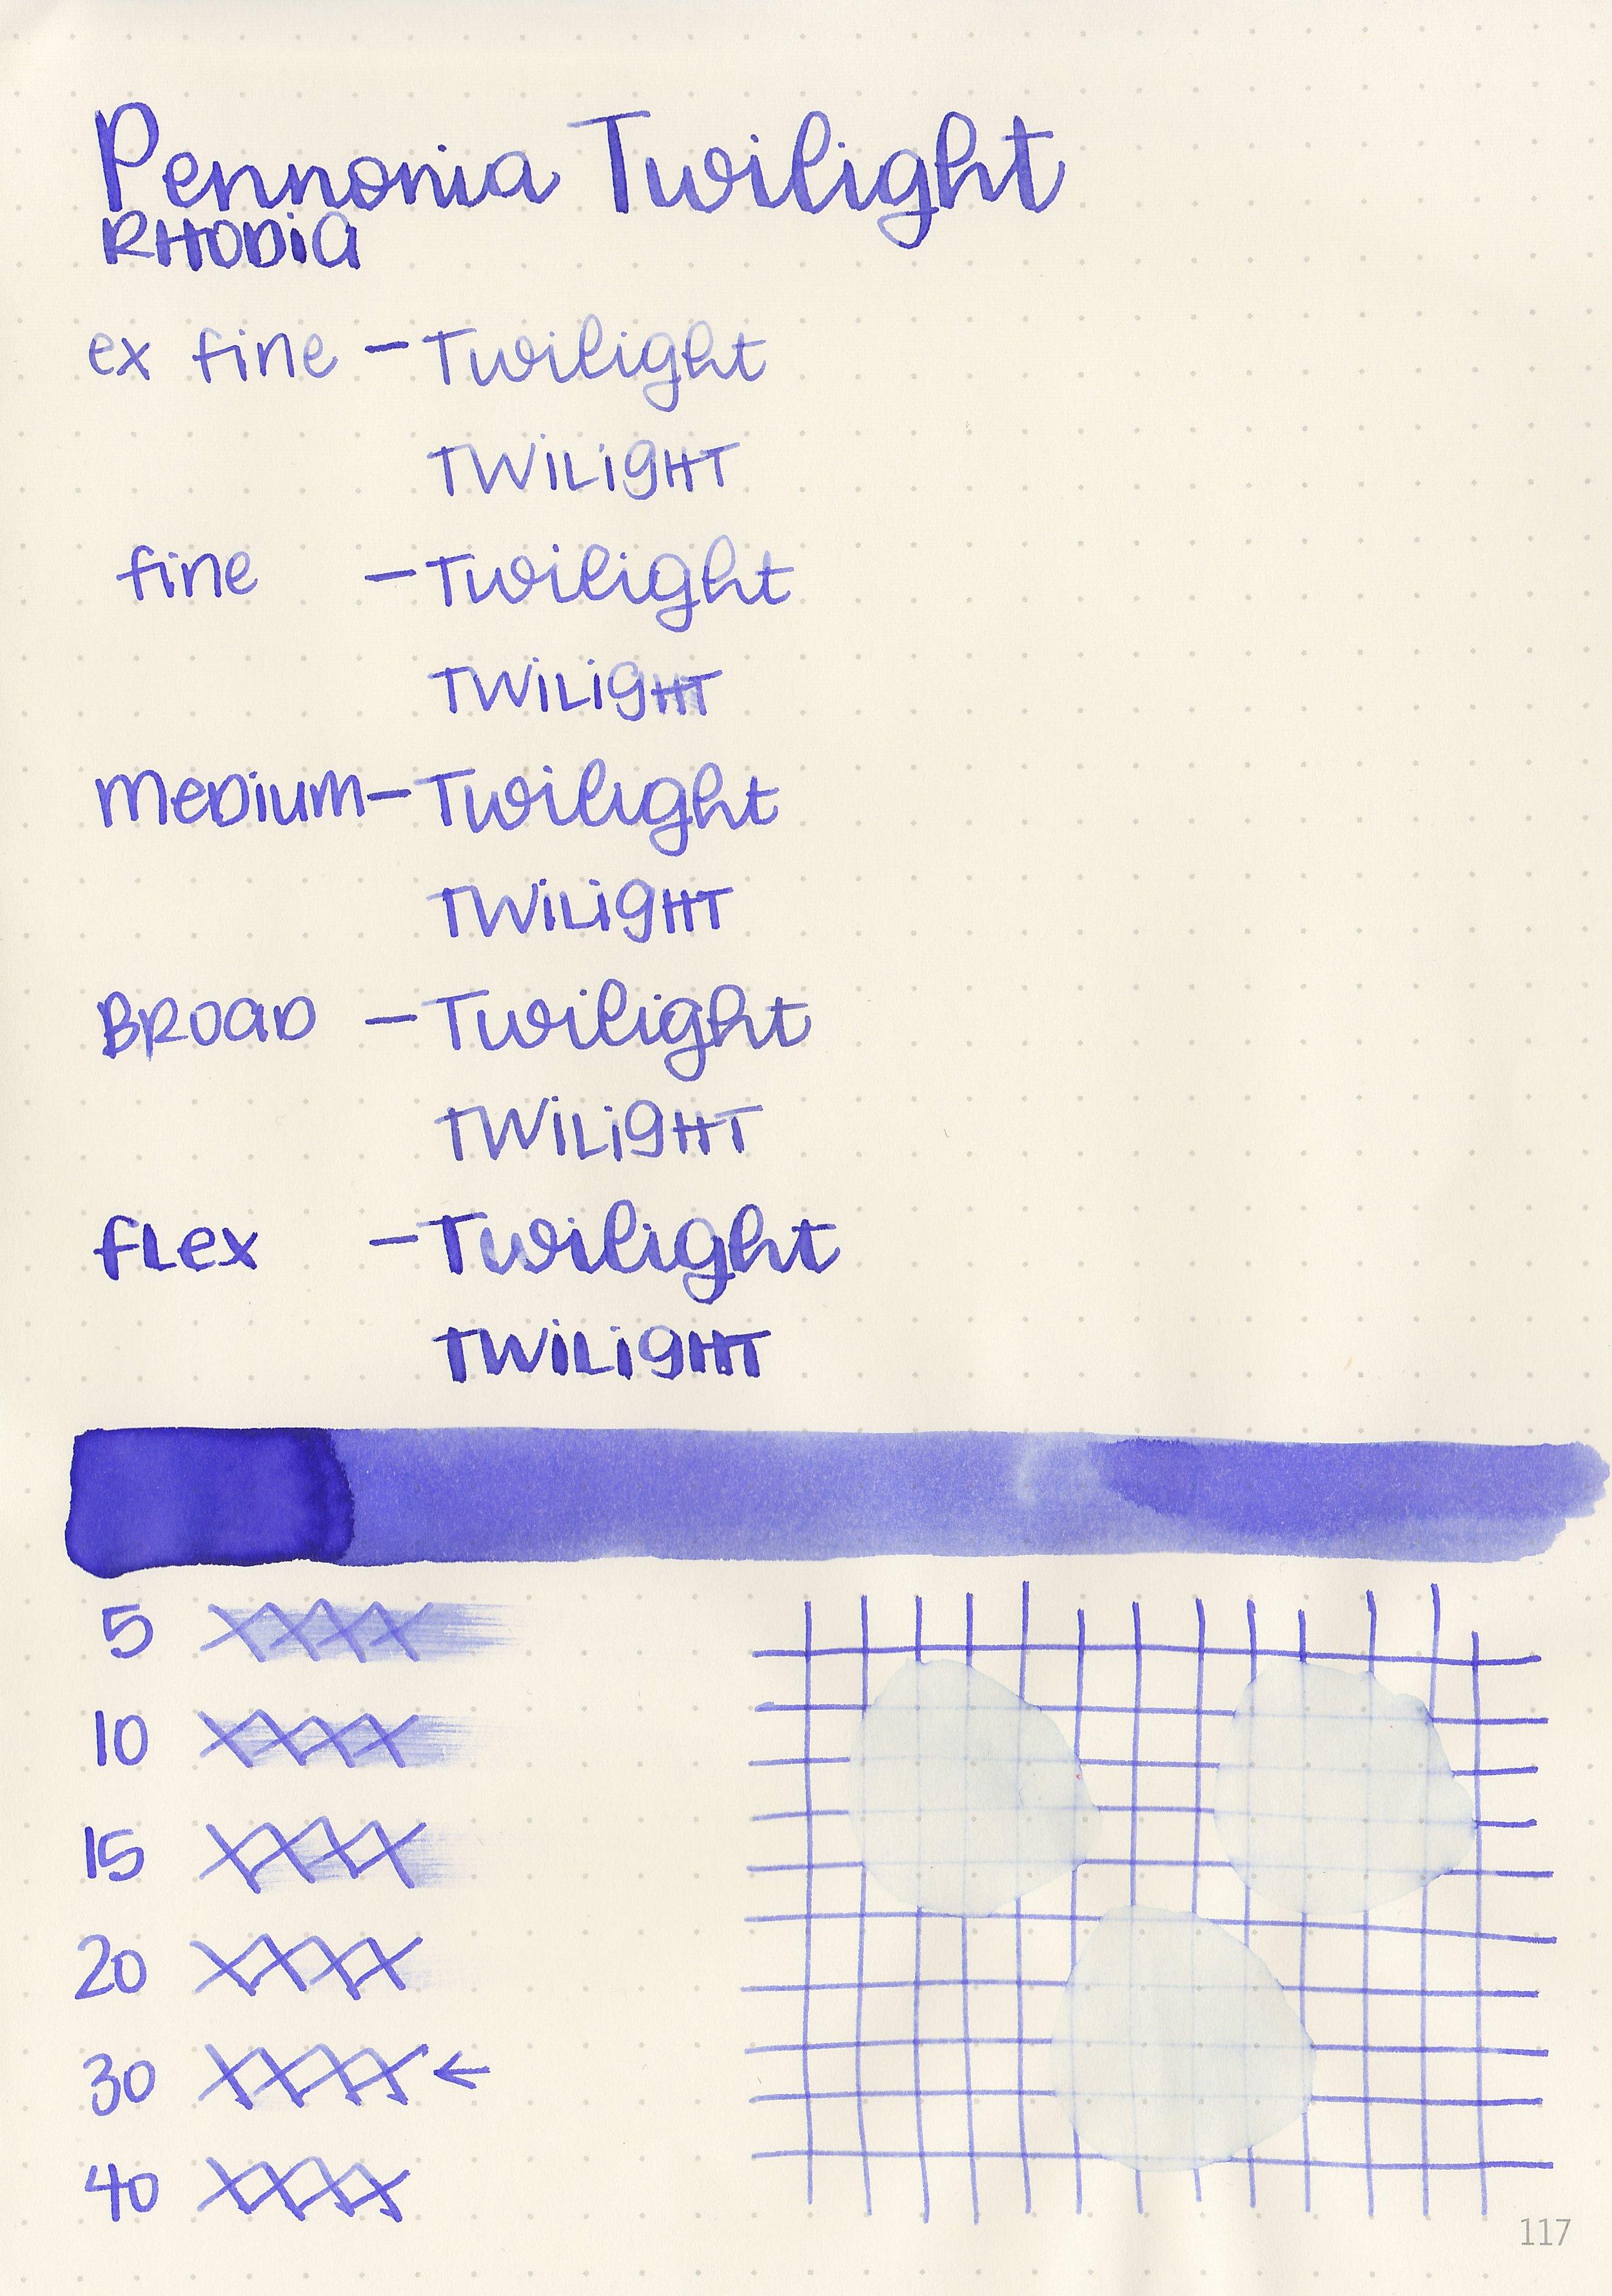 Pennonia Twilight
RHODiA
ex fine – Twilight
TWiLigHT
fine – Twilight
TWiLigHT
meDium – Twilight
TWiLigHT
BROaD – Twilight
TWiLigHT
fLex – Twilight
TWiLigHT
5 XXXX
10 XXXX
15 XXXX
20 XXXX
30 XXXX ←
40 XXXX
117